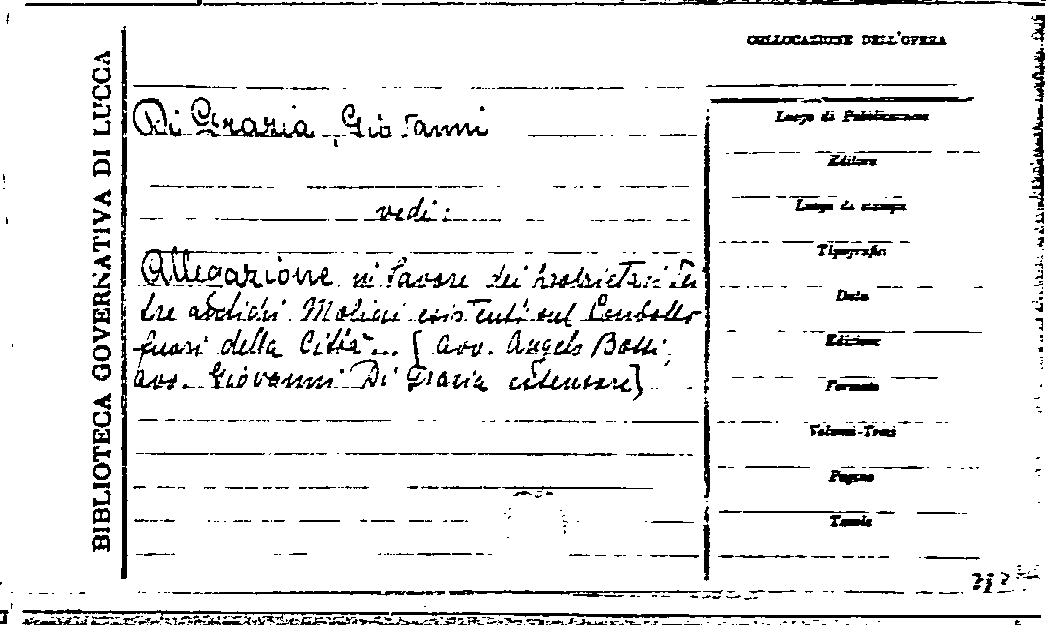 BIBLIOTECA GOVERNATIVA DI LUCCA
COLLOCAZIONE DELL'OPERA
Di Grazia, Giovanni
vedi:
Allegazione in favore dei proprietari dei
tre antichi Molini esistenti sul Condotto
fuori della Città... [avv. Angelo Bossi,
avv. Giovanni Di Grazia estensore]
Luogo di Pubblicazione
Editore
Luogo di stampa
Tipografia
Data
Edizione
Formato
Volumi-Tomi
Pagine
Tavole